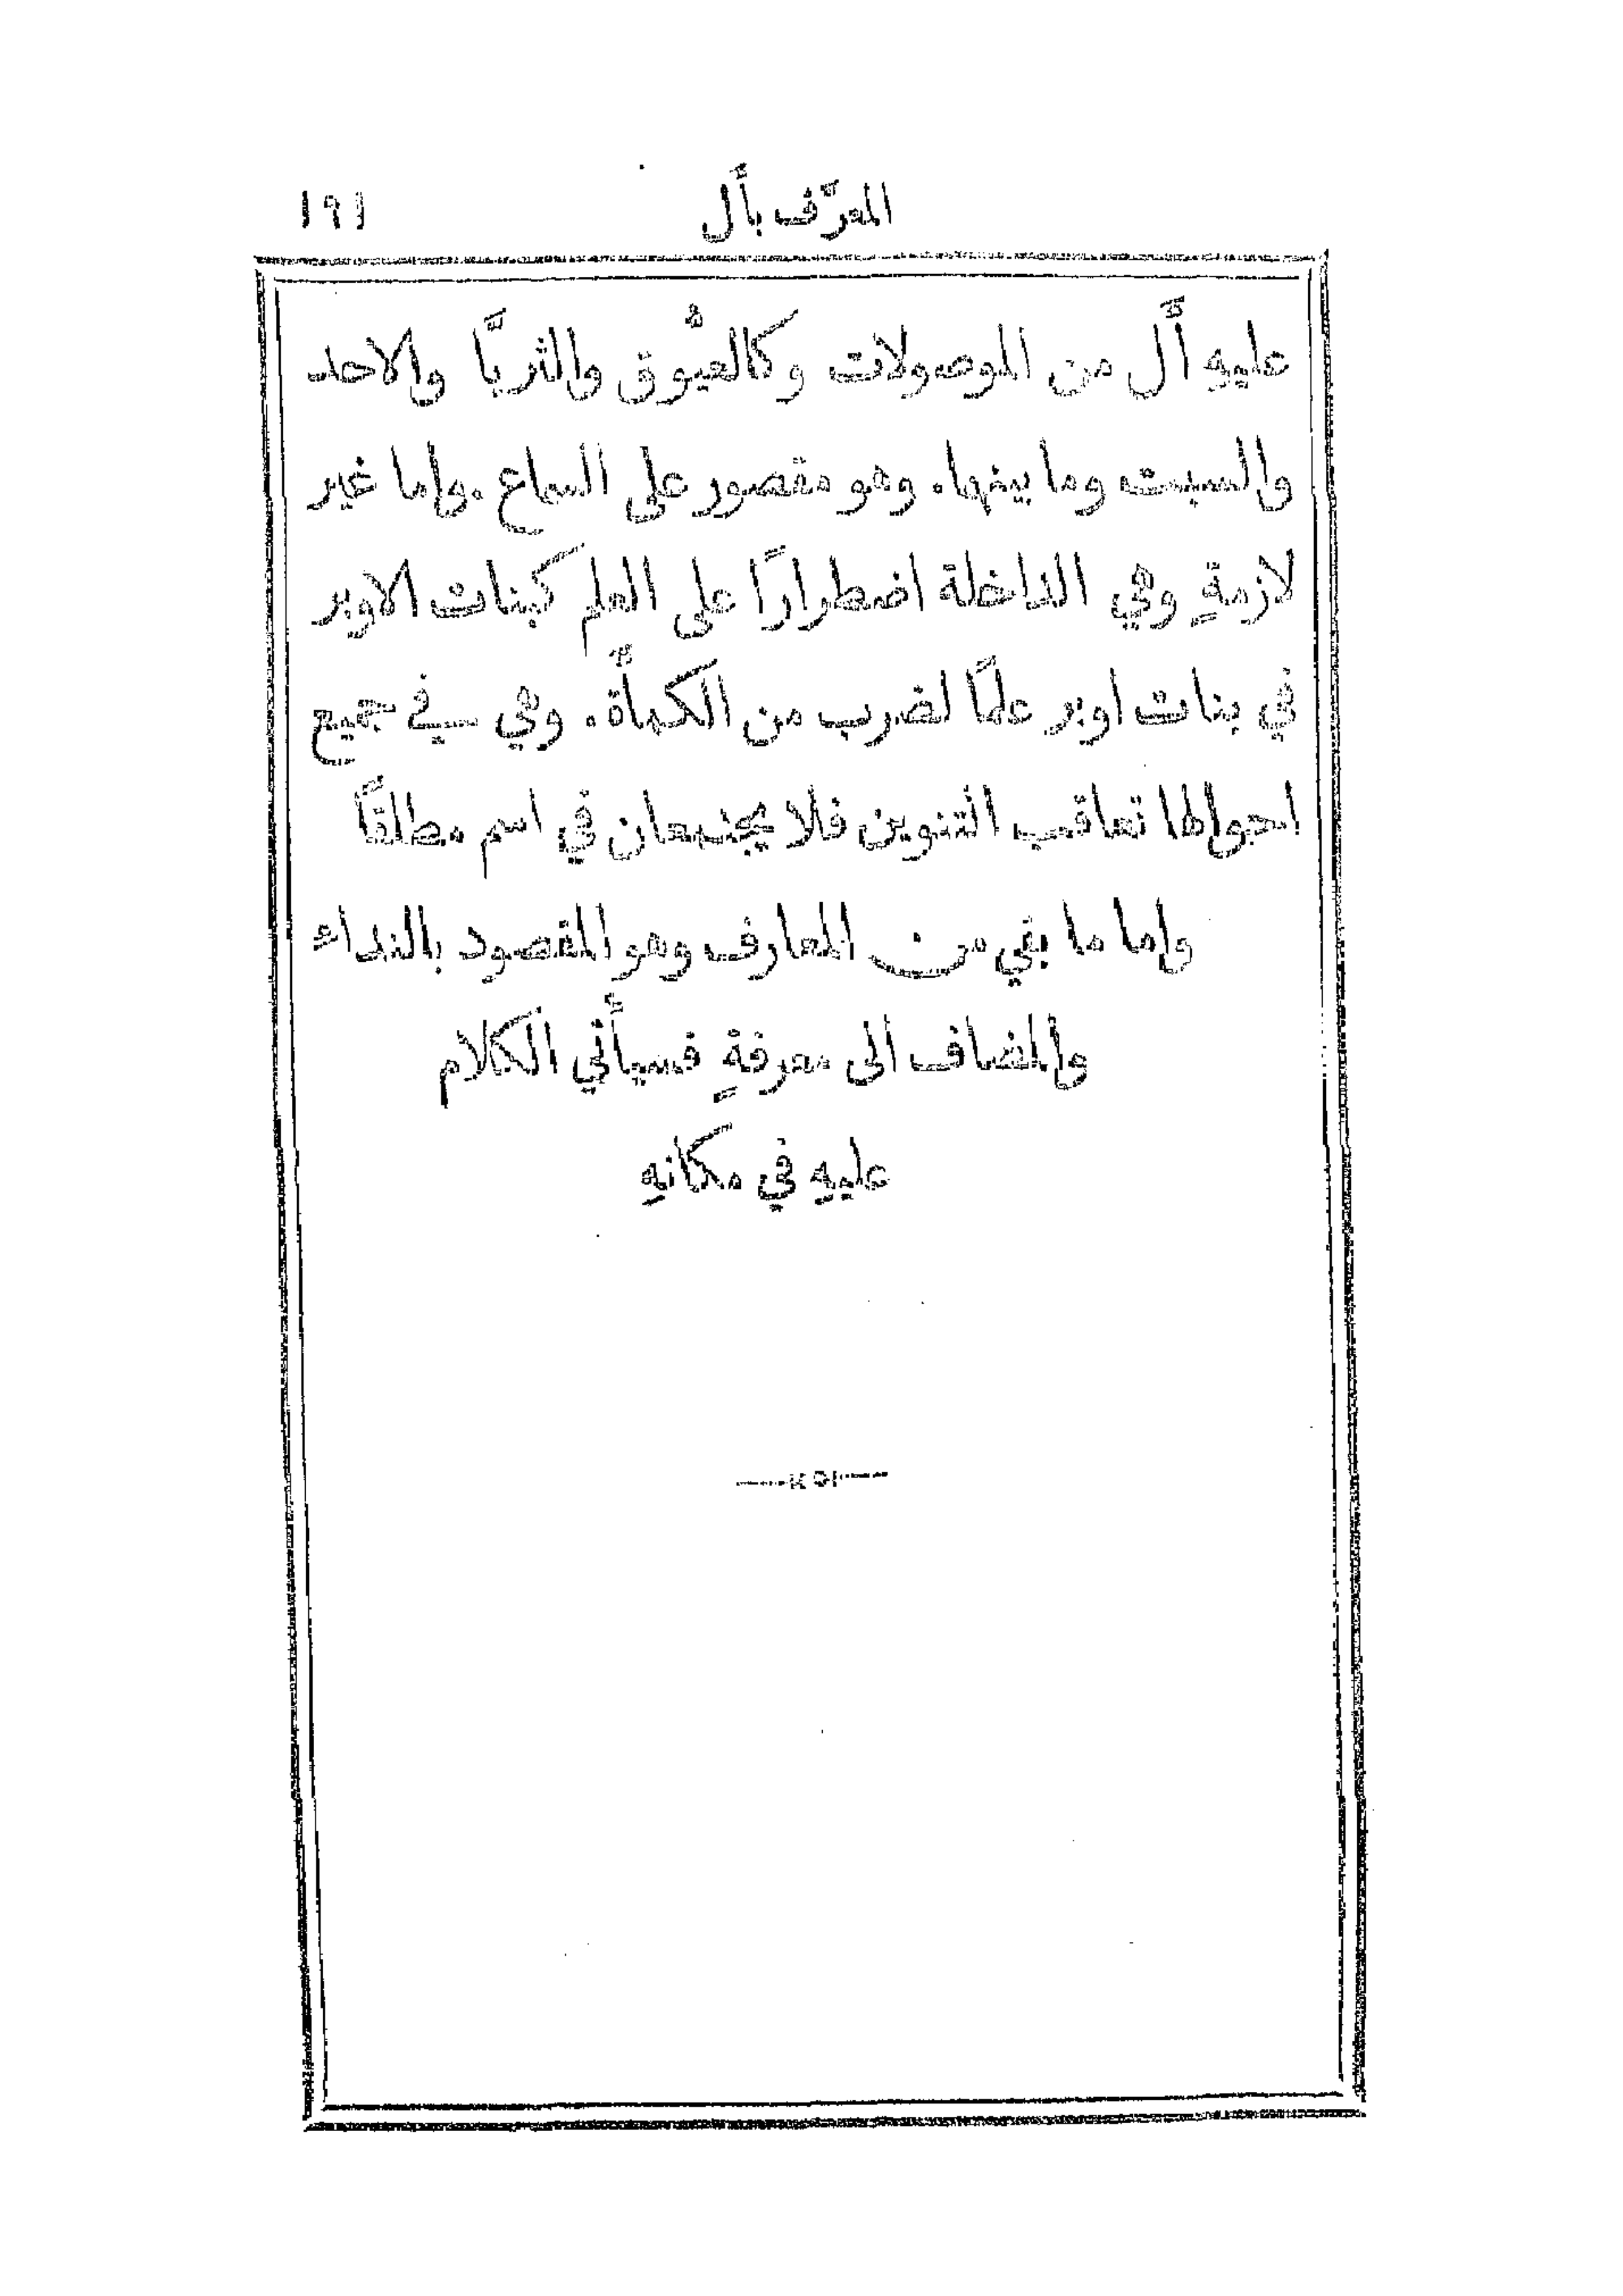 المعرَّف بأَل ١٩١
عليهِ أَل من الموصولات وكالعيُّوق والثريَّا والاحد
والسبت وما بينها. وهو مقصور على السماع. واما غير
لازمةٍ وهي الداخلة اضطرارًا على العلم كبنات الاوبر
في بنات اوبر علمًا لضرب من الكمأَة. وهي في جميع
احوالها تعاقب التنوين فلا يجتمعان في اسم مطلقًا
واما ما بقي من المعارف وهو المقصود بالنداء
والمضاف الى معرفةٍ فسيأَتي الكلام
عليهِ في مكانهِ